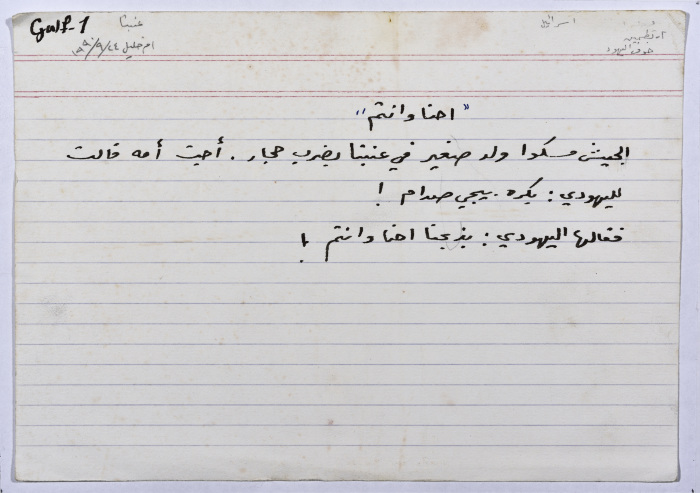 Gulf-1
عنبتا
ام خليل ٢٤/٩/١٩٩٠
اسرائيل
خوف اليهود
"احنا وانتم"
الجيش مسكوا ولد صغير في عنبتا بضرب حجار . أجت أمه قالت
لليهودي : بكره بيجي صدام !
فقالها اليهودي : بذبحنا احنا وانتم !